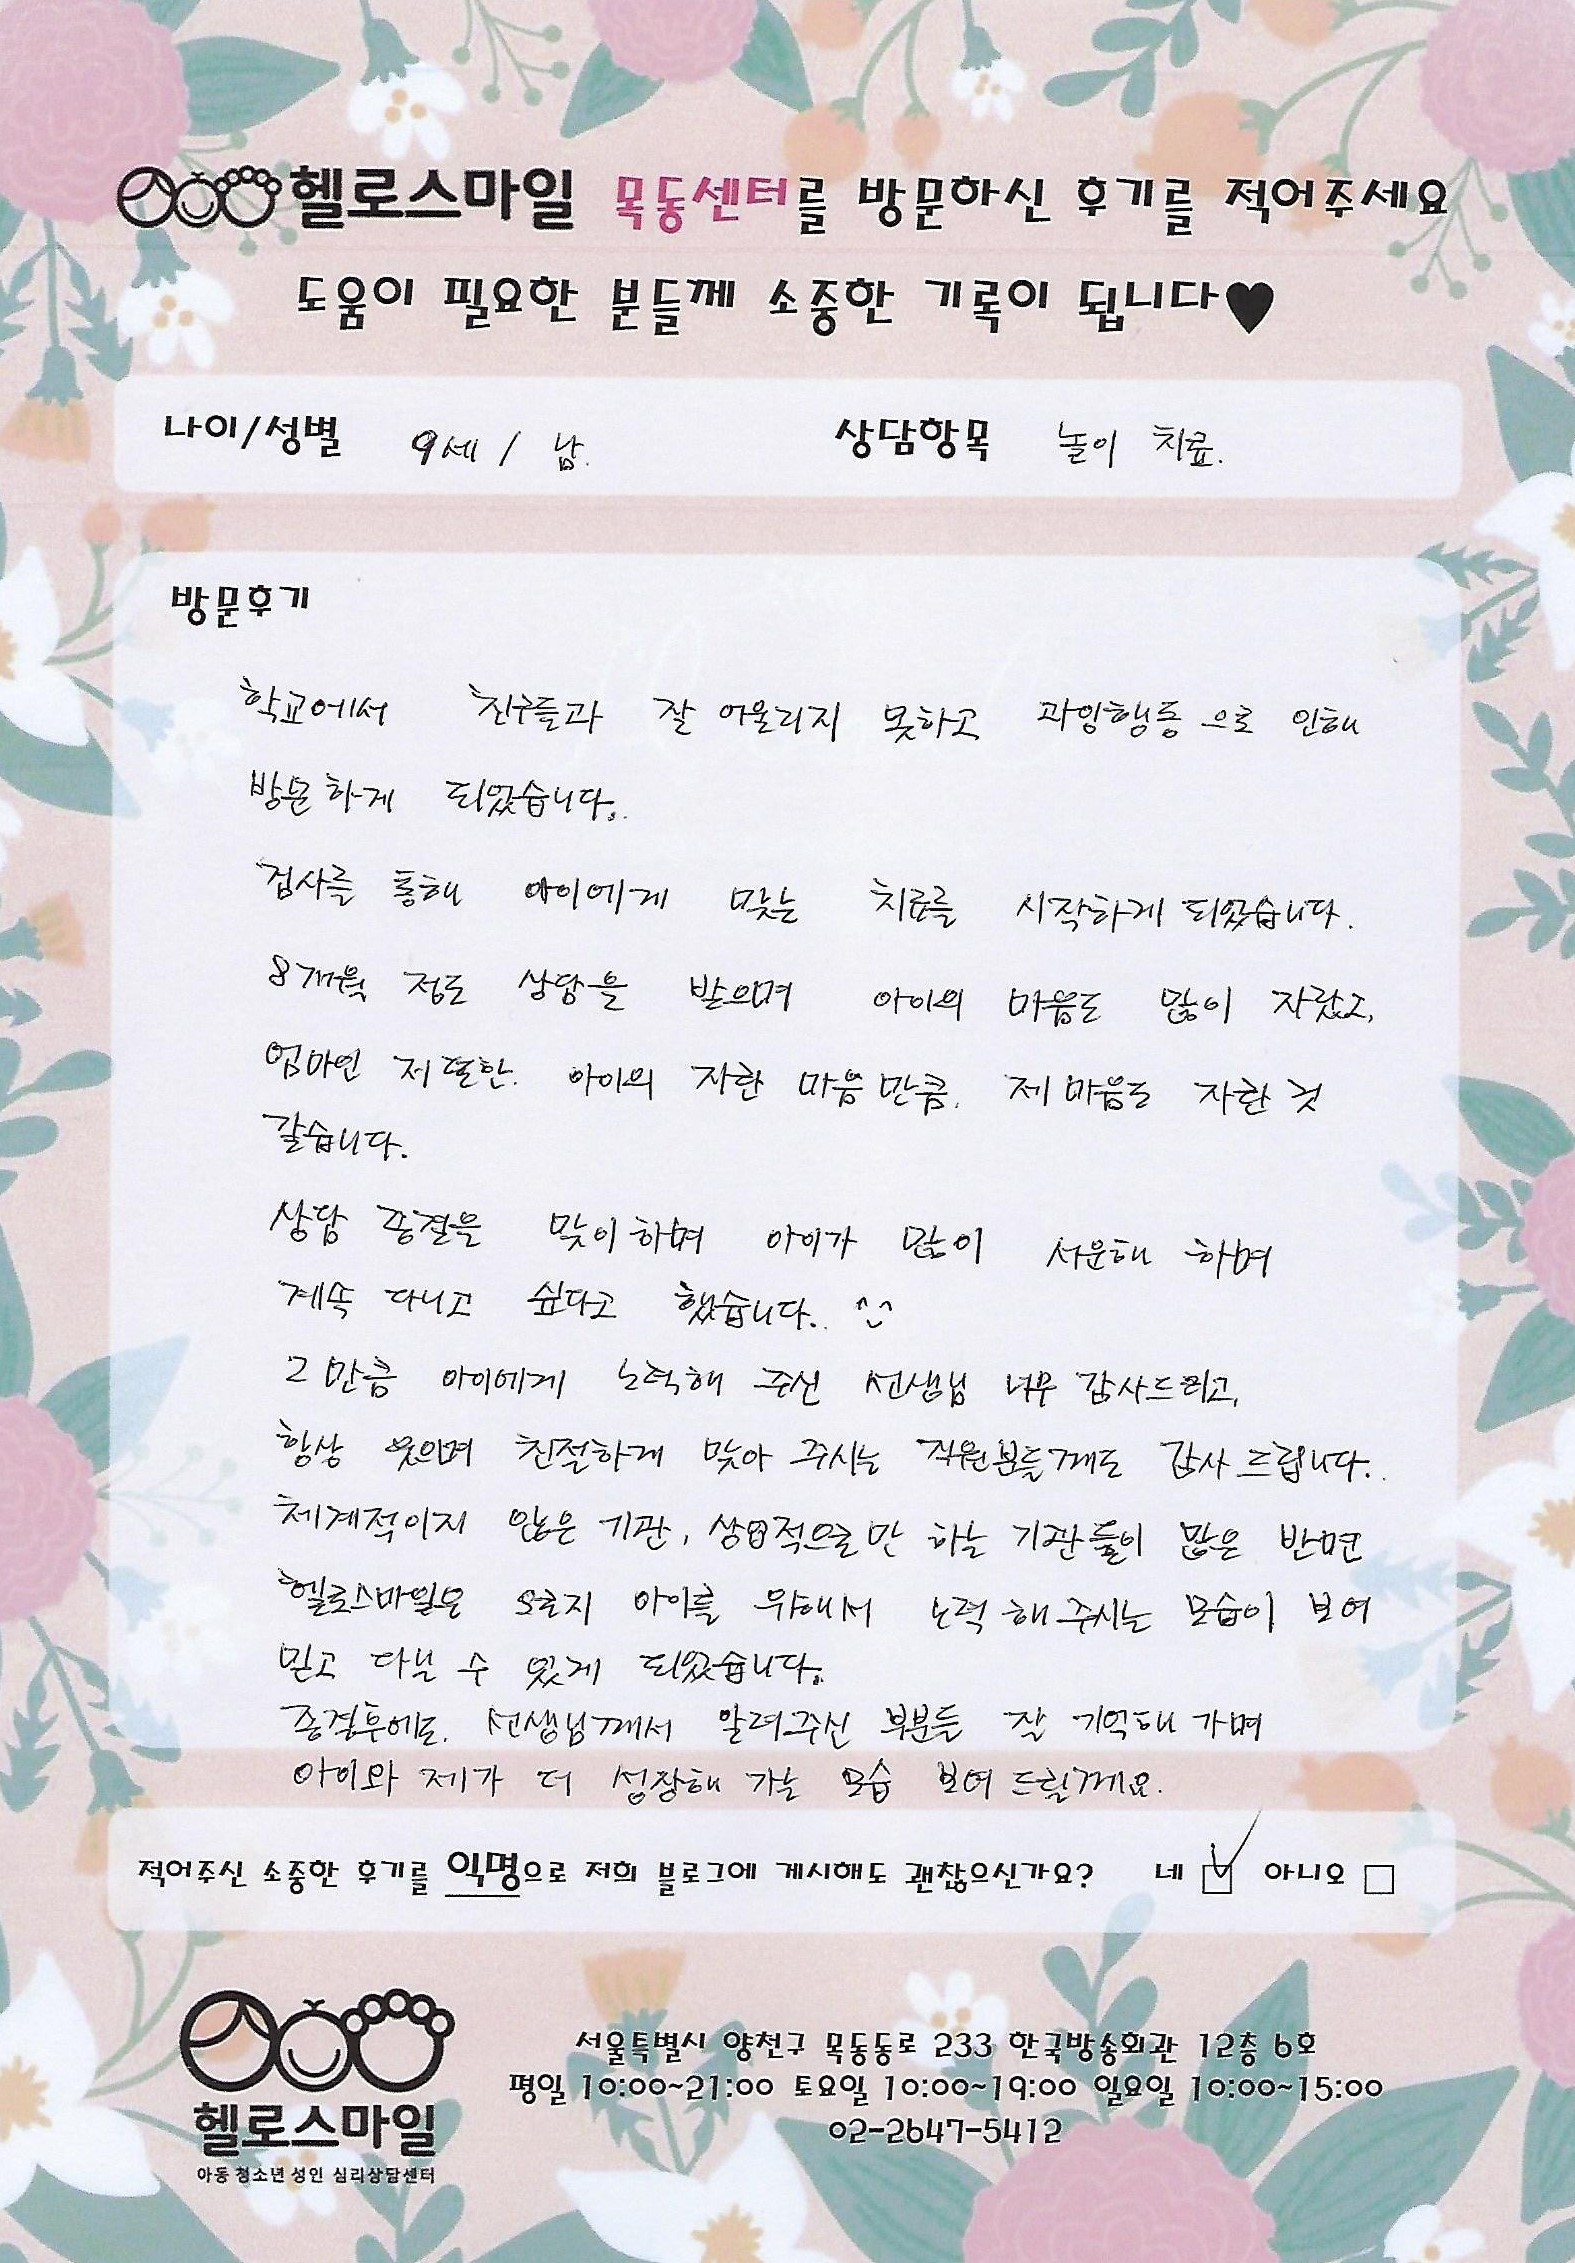 헬로스마일 목동센터를 방문하신 후기를 적어주세요
도움이 필요한 분들께 소중한 기록이 됩니다♥
나이/성별 9세 / 남. 상담항목 놀이 치료.
방문후기
학교에서 친구들과 잘 어울리지 못하고 과잉행동으로 인해
방문하게 되었습니다.
검사를 통해 아이에게 맞는 치료를 시작하게 되었습니다.
8개월 정도 상담을 받으며 아이의 마음도 많이 자랐고,
엄마인 저 또한. 아이의 자란 마음만큼. 제 마음도 자란 것
같습니다.
상담 종결을 맞이하며 아이가 많이 서운해 하며
계속 다니고 싶다고 했습니다. ^^
그만큼 아이에게 노력해 주신 선생님 너무 감사드리고,
항상 웃으며 친절하게 맞아 주시는 직원분들께도 감사드립니다.
체계적이지 않은 기관, 상업적으로만 하는 기관들이 많은 반면
헬로스마일은 오로지 아이를 위해서 노력해주시는 모습이 보여
믿고 다닐 수 있게 되었습니다.
종결후에도. 선생님께서 알려주신 부분들 잘 기억해 가며
아이와 제가 더 성장해 가는 모습 보여 드릴께요.
적어주신 소중한 후기를 익명으로 저희 블로그에 게시해도 괜찮으신가요? 네 ☑ 아니오 □
헬로스마일
아동 청소년 성인 심리상담센터
서울특별시 양천구 목동동로 233 한국방송회관 12층 6호
평일 10:00~21:00 토요일 10:00~19:00 일요일 10:00~15:00
02-2647-5412